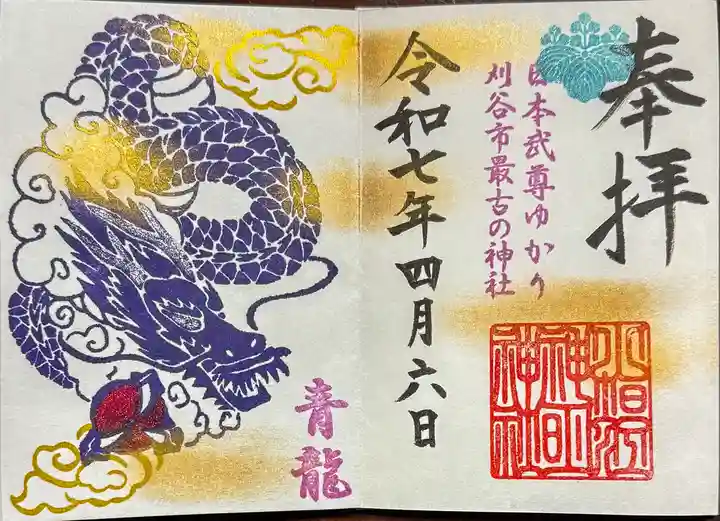 奉拝
日本武尊ゆかり
刈谷市最古の神社
令和七年四月六日
青龍